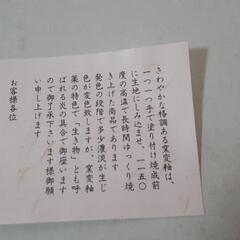 さわやかな格調ある窯変釉は、
一つ一つ手で塗り付け焼成前
に生地にしみ込ませ、一一五〇
度の高温で長時間ゆっくり焼
き上げた商品であります
発色の段階で多少濃淡が生じ
色が変色致しますが、窯変釉
薬の特色で「生き物」とも呼
ばれる炎の具合で御座います
ので御了承下さいます様御願
い申し上げます
お客様各位